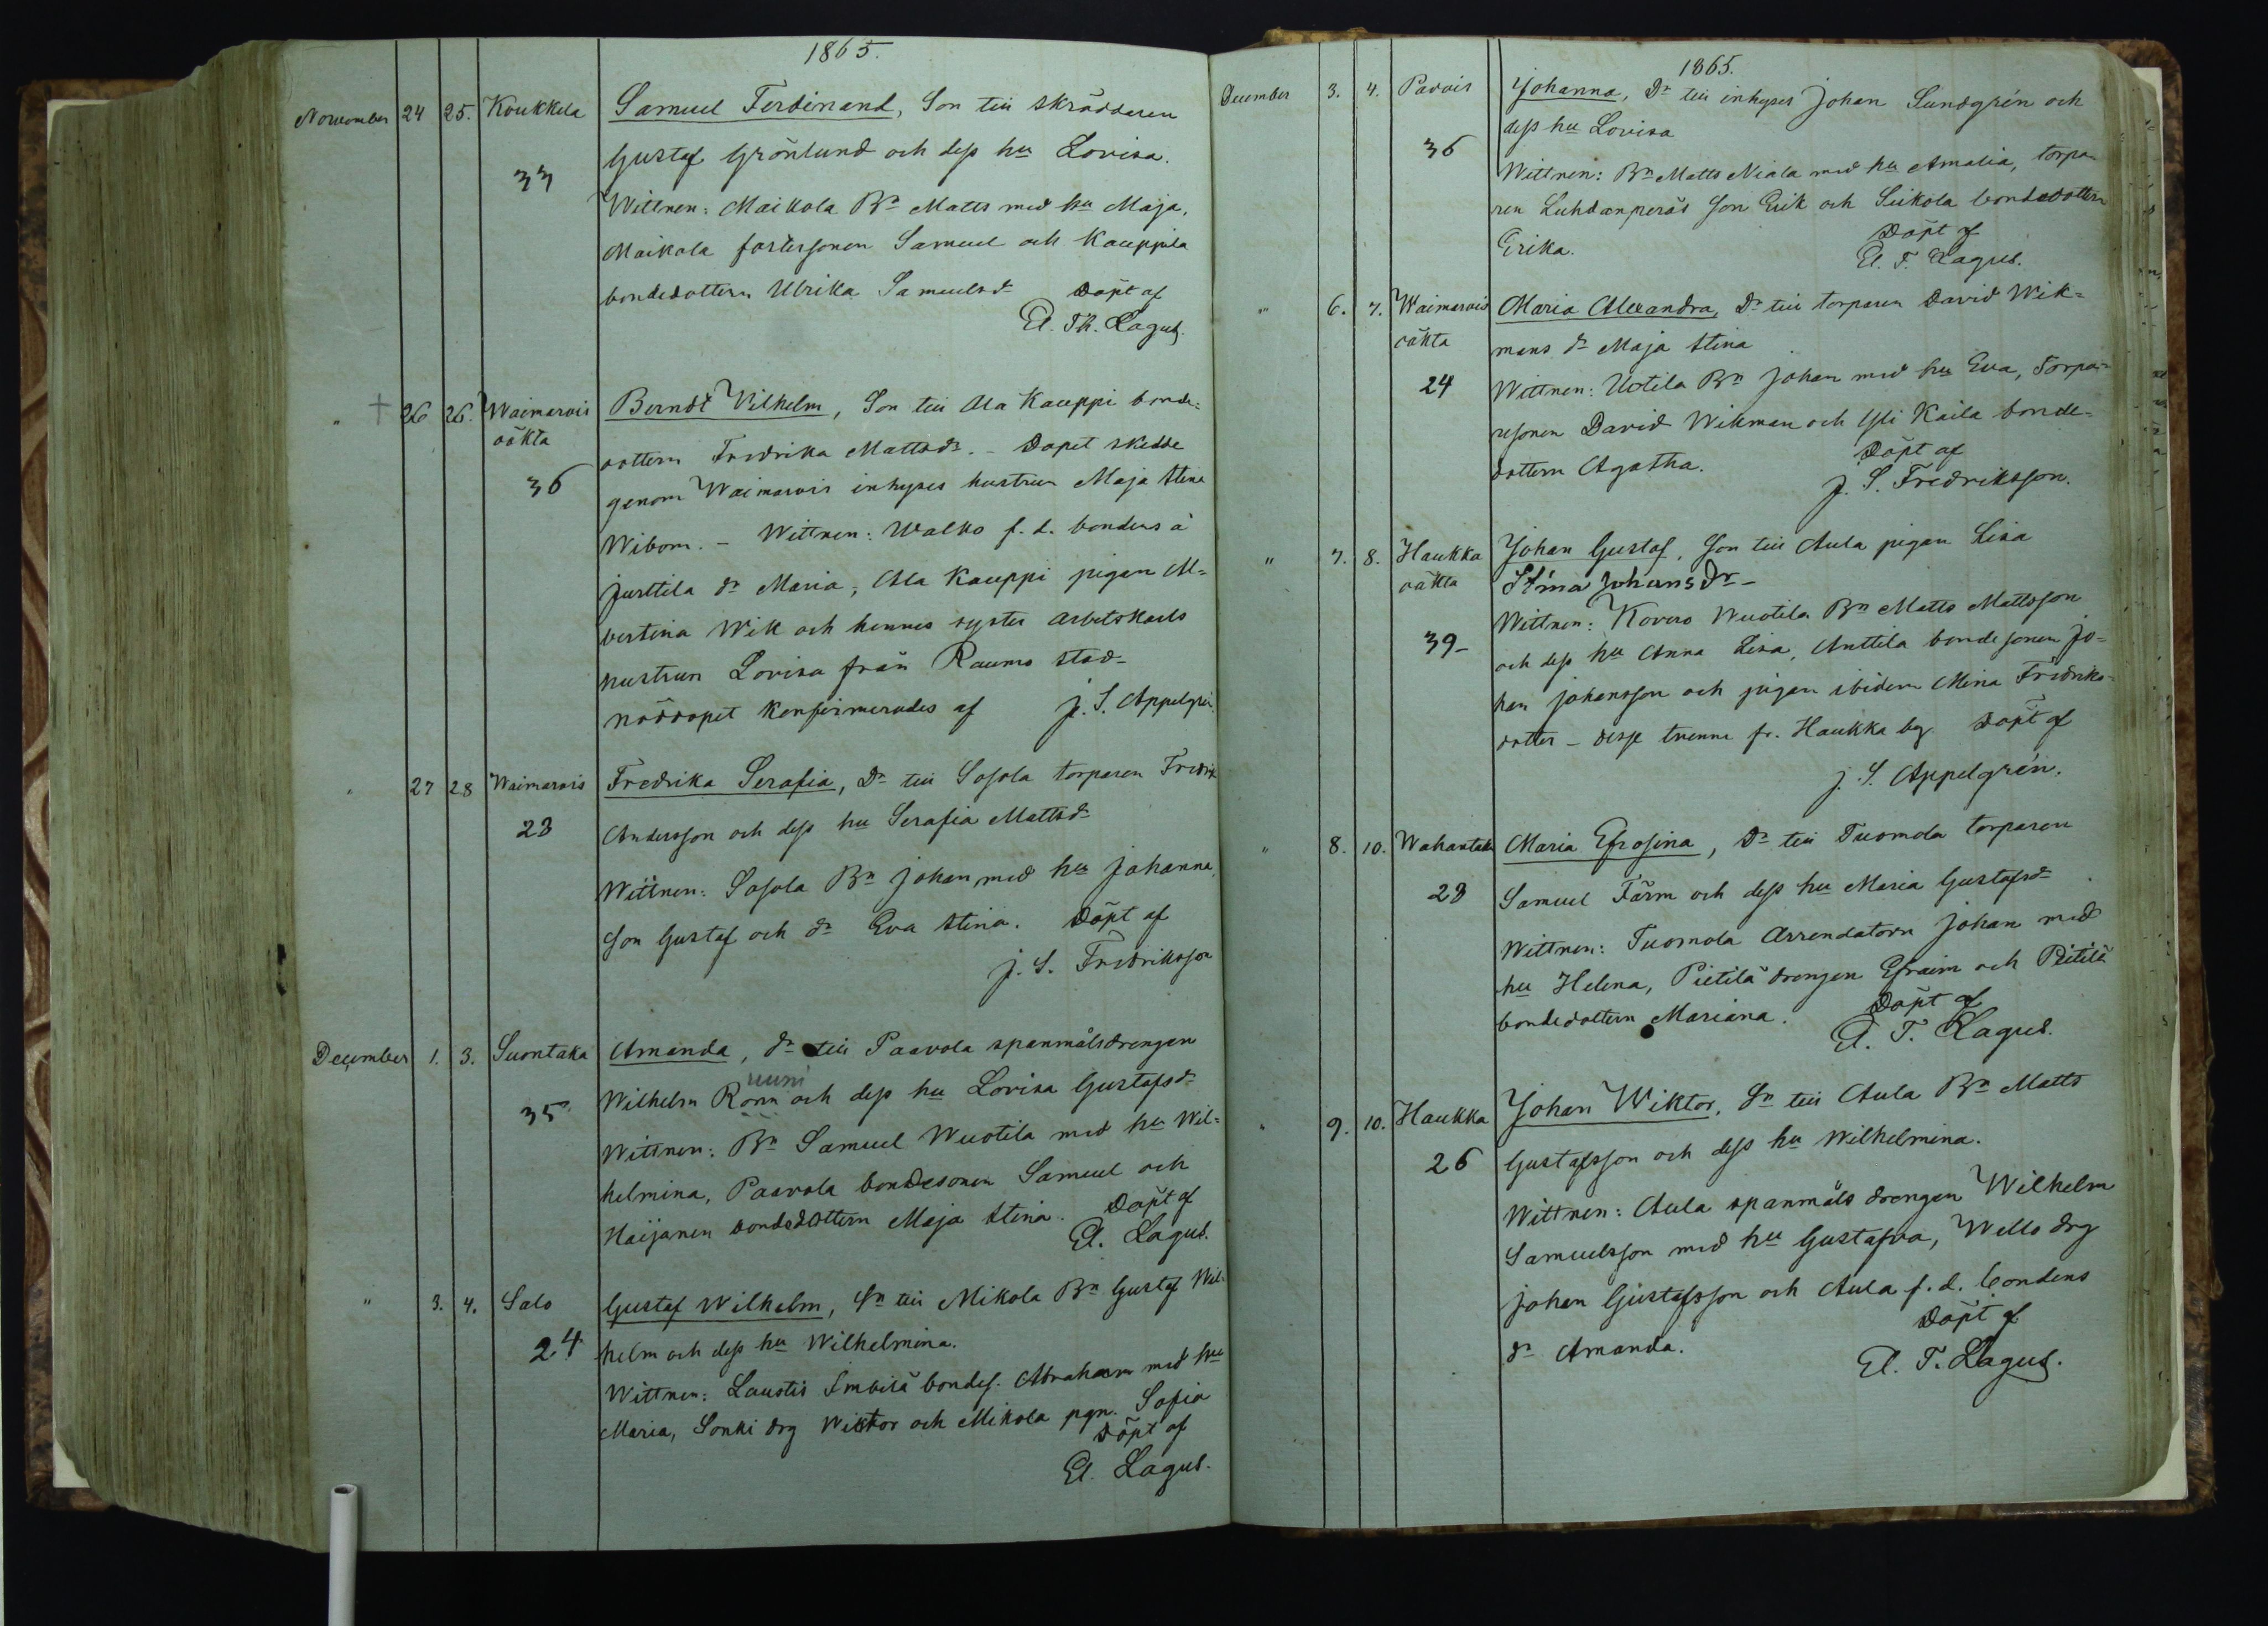 1865.
November 24 25. Koukkela Samuel Ferdinand, Son till skrädderen
Gustaf Grönlund och dess hu Lovisa.
33
Wittnen: Maikola Bn Matts med hu Maja,
Maikola fostersonen Samuel och Kauppila
bondedottern Ulrika Samuelsdr Döpt af
El. Th. Lagus.
" † 26 26. Waimarois Berndt Vilhelm, Son till Ala Kauppi bonde-
oäkta
dottern Fredrika Mattsdr. - Dopet skedde
36
genom Waimarois inhyses hustrun Maja Stina
Wibom. - Wittnen: Walko f. d. bondens å
Junttila dr Maria, Ala Kauppi pigan Al-
bertina Wik och hennes syster arbetskarls
hustrun Lovisa från Raumo stad-
nöddopet konfirmerades af J. S. Appelgrén.
" 27 28 Waimarois Fredrika Serafia, Dr till Sosola torparen Fredrik
23
Andersson och dess hu Serafia Mattsdr
Wittnen: Sosola Bn Johan med hu Johanna,
Son Gustaf och dr Eva Stina. Döpt af
J. S. Fredriksson
December 1. 3. Suontaka Amanda, dr till Paavola spanmålsdrengen
Wilhelm Ronn och dess hu Lovisa Gustafsdr
35
Wittnen: Bn Samuel Wuotila med hu Wil-
helmina, Paavola bondesonen Samuel och
Haijanen bondedottern Maja Stina. Döpt af
El. Lagus.
" 3. 4. Salo Gustaf Wilhelm, Sn till Mikola Bn Gustaf Wil-
24
helm och dess hu Wilhelmina.
Wittnen: Laustis Imbilä bondes. Abraham med hu
Maria, Sonki drg Wiktor och Mikola pgn. Sofia
Döpt af
El. Lagus.
1865.
December 3. 4. Padois Johanna, Dr till inhyses Johan Sundgrén och
dess hu Lovisa
36
Wittnen: Bn Matts Niala med hu Amalia, torpa-
ren Luhdanperäs Son Erik och Siikola bondedottern
Erika. Döpt af
El. T. Lagus.
" 6. 7. Waimarois Maria Alexandra, Dr till torparen David Wik-
oäkta
mans dr Maja Stina
24
Wittnen: Uotila Bn Johan med hu Eva, Torpa-
resonen David Wikman och Yli Kaila bonde-
dottern Agatha. Döpt af
J. S. Fredriksson.
" 7. 8. Haukka Johan Gustaf, Son till Aula pigan Lisa
oäkta
Stina Johansdr -
Wittnen: Kovero Wuotila Bn Matts Mattsson
39-
och dess hu Anna Lisa, Anttila bondesonen Jo-
han Johansson och pigan ibidem Mina Fredriks-
dotter - desse trenne fr. Haukka by. Döpt af
J. S. Appelgrén.
" 8. 10. Wahantaka Maria Efrosina, Dr till Tuomola torparen
28
Samuel Färm och dess hu Maria Gustafsdr
Wittnen: Tuomola Arrendatorn Johan med
hu Helena, Pietilä drengen Efraim och Pietilä
bondedottern Mariana. Döpt af
El. T. Lagus.
" 9. 10. Haukka Johan Wiktor, Sn till Aula Bn Matts
26
Gustafsson och dess hu Wilhelmina.
Wittnen: Aula spanmåls drengen Wilhelm
Samuelsson med hu Gustafva, Wello drg
Johan Gustafsson och Aula f. d. bondens
dr Amanda. Döpt af
El. T. Lagus.